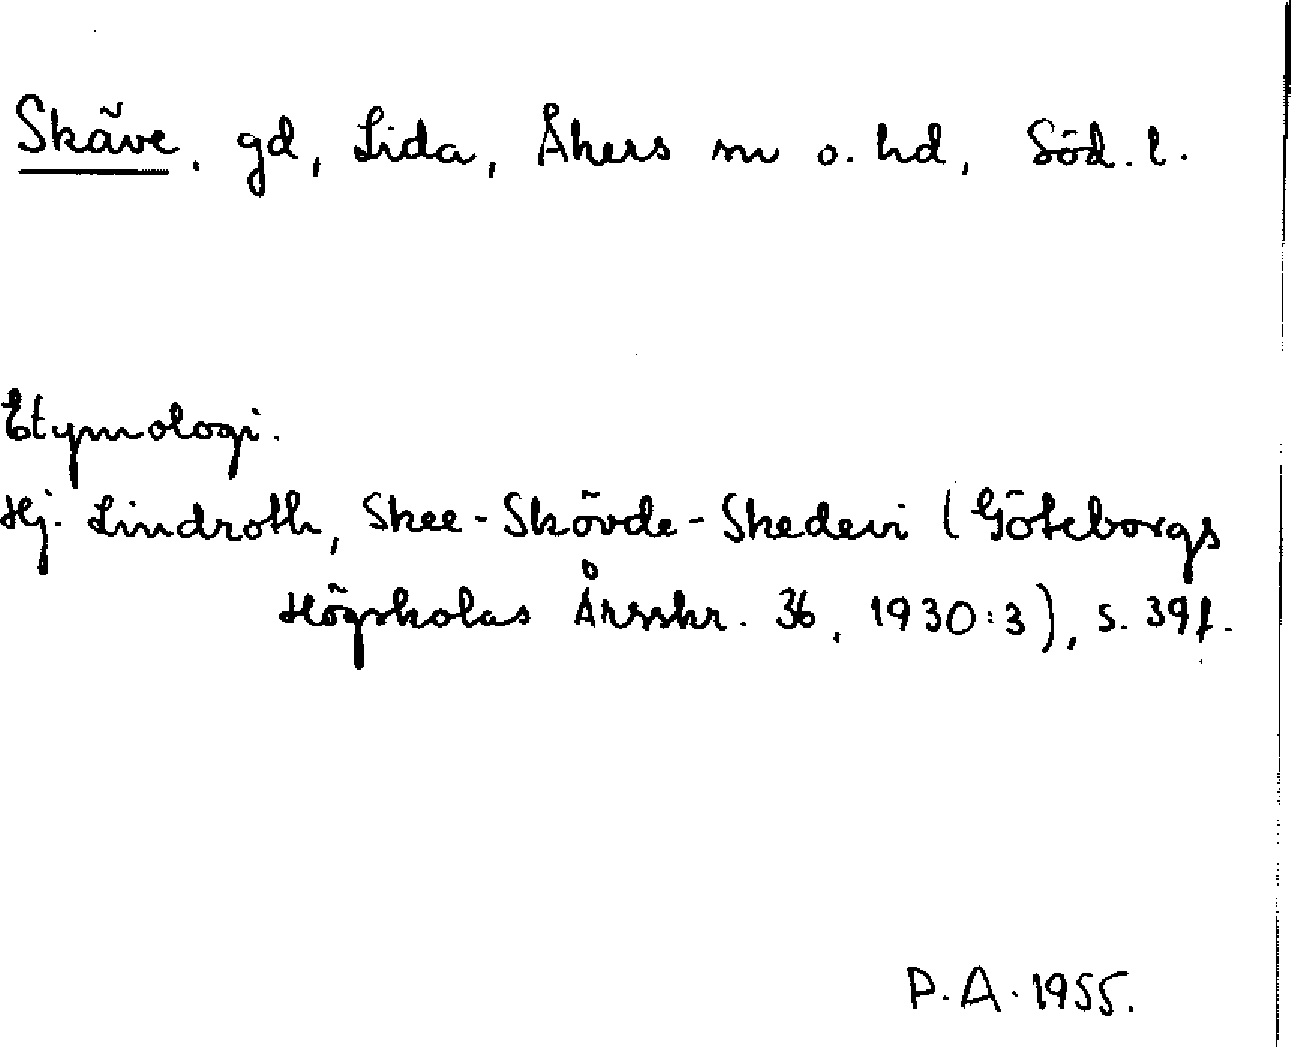 Skäve, gd, Lida, Åkers sn o. hd, Söd. l.
Etymologi.
Hj. Lindroth, Skee-Skövde-Skedevi (Göteborgs
Högskolas Årsskr. 36, 1930:3), s. 39f.
P.A. 1955.